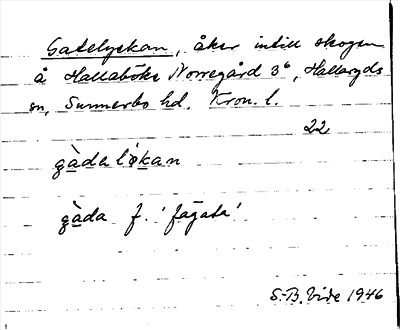 Gatelyckan, åker intill skogen
å Hallaböke Norregård 3⁶, Hallaryds
sn, Sunnerbo hd. Kron. l.
22
gàdalỳkan
gàda f. 'fägata'
S-B. Vide 1946